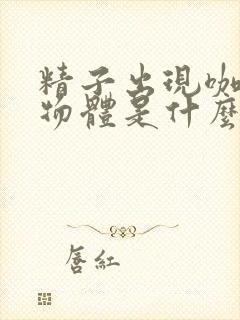 精子出現咖
物體是什麼
唇紅